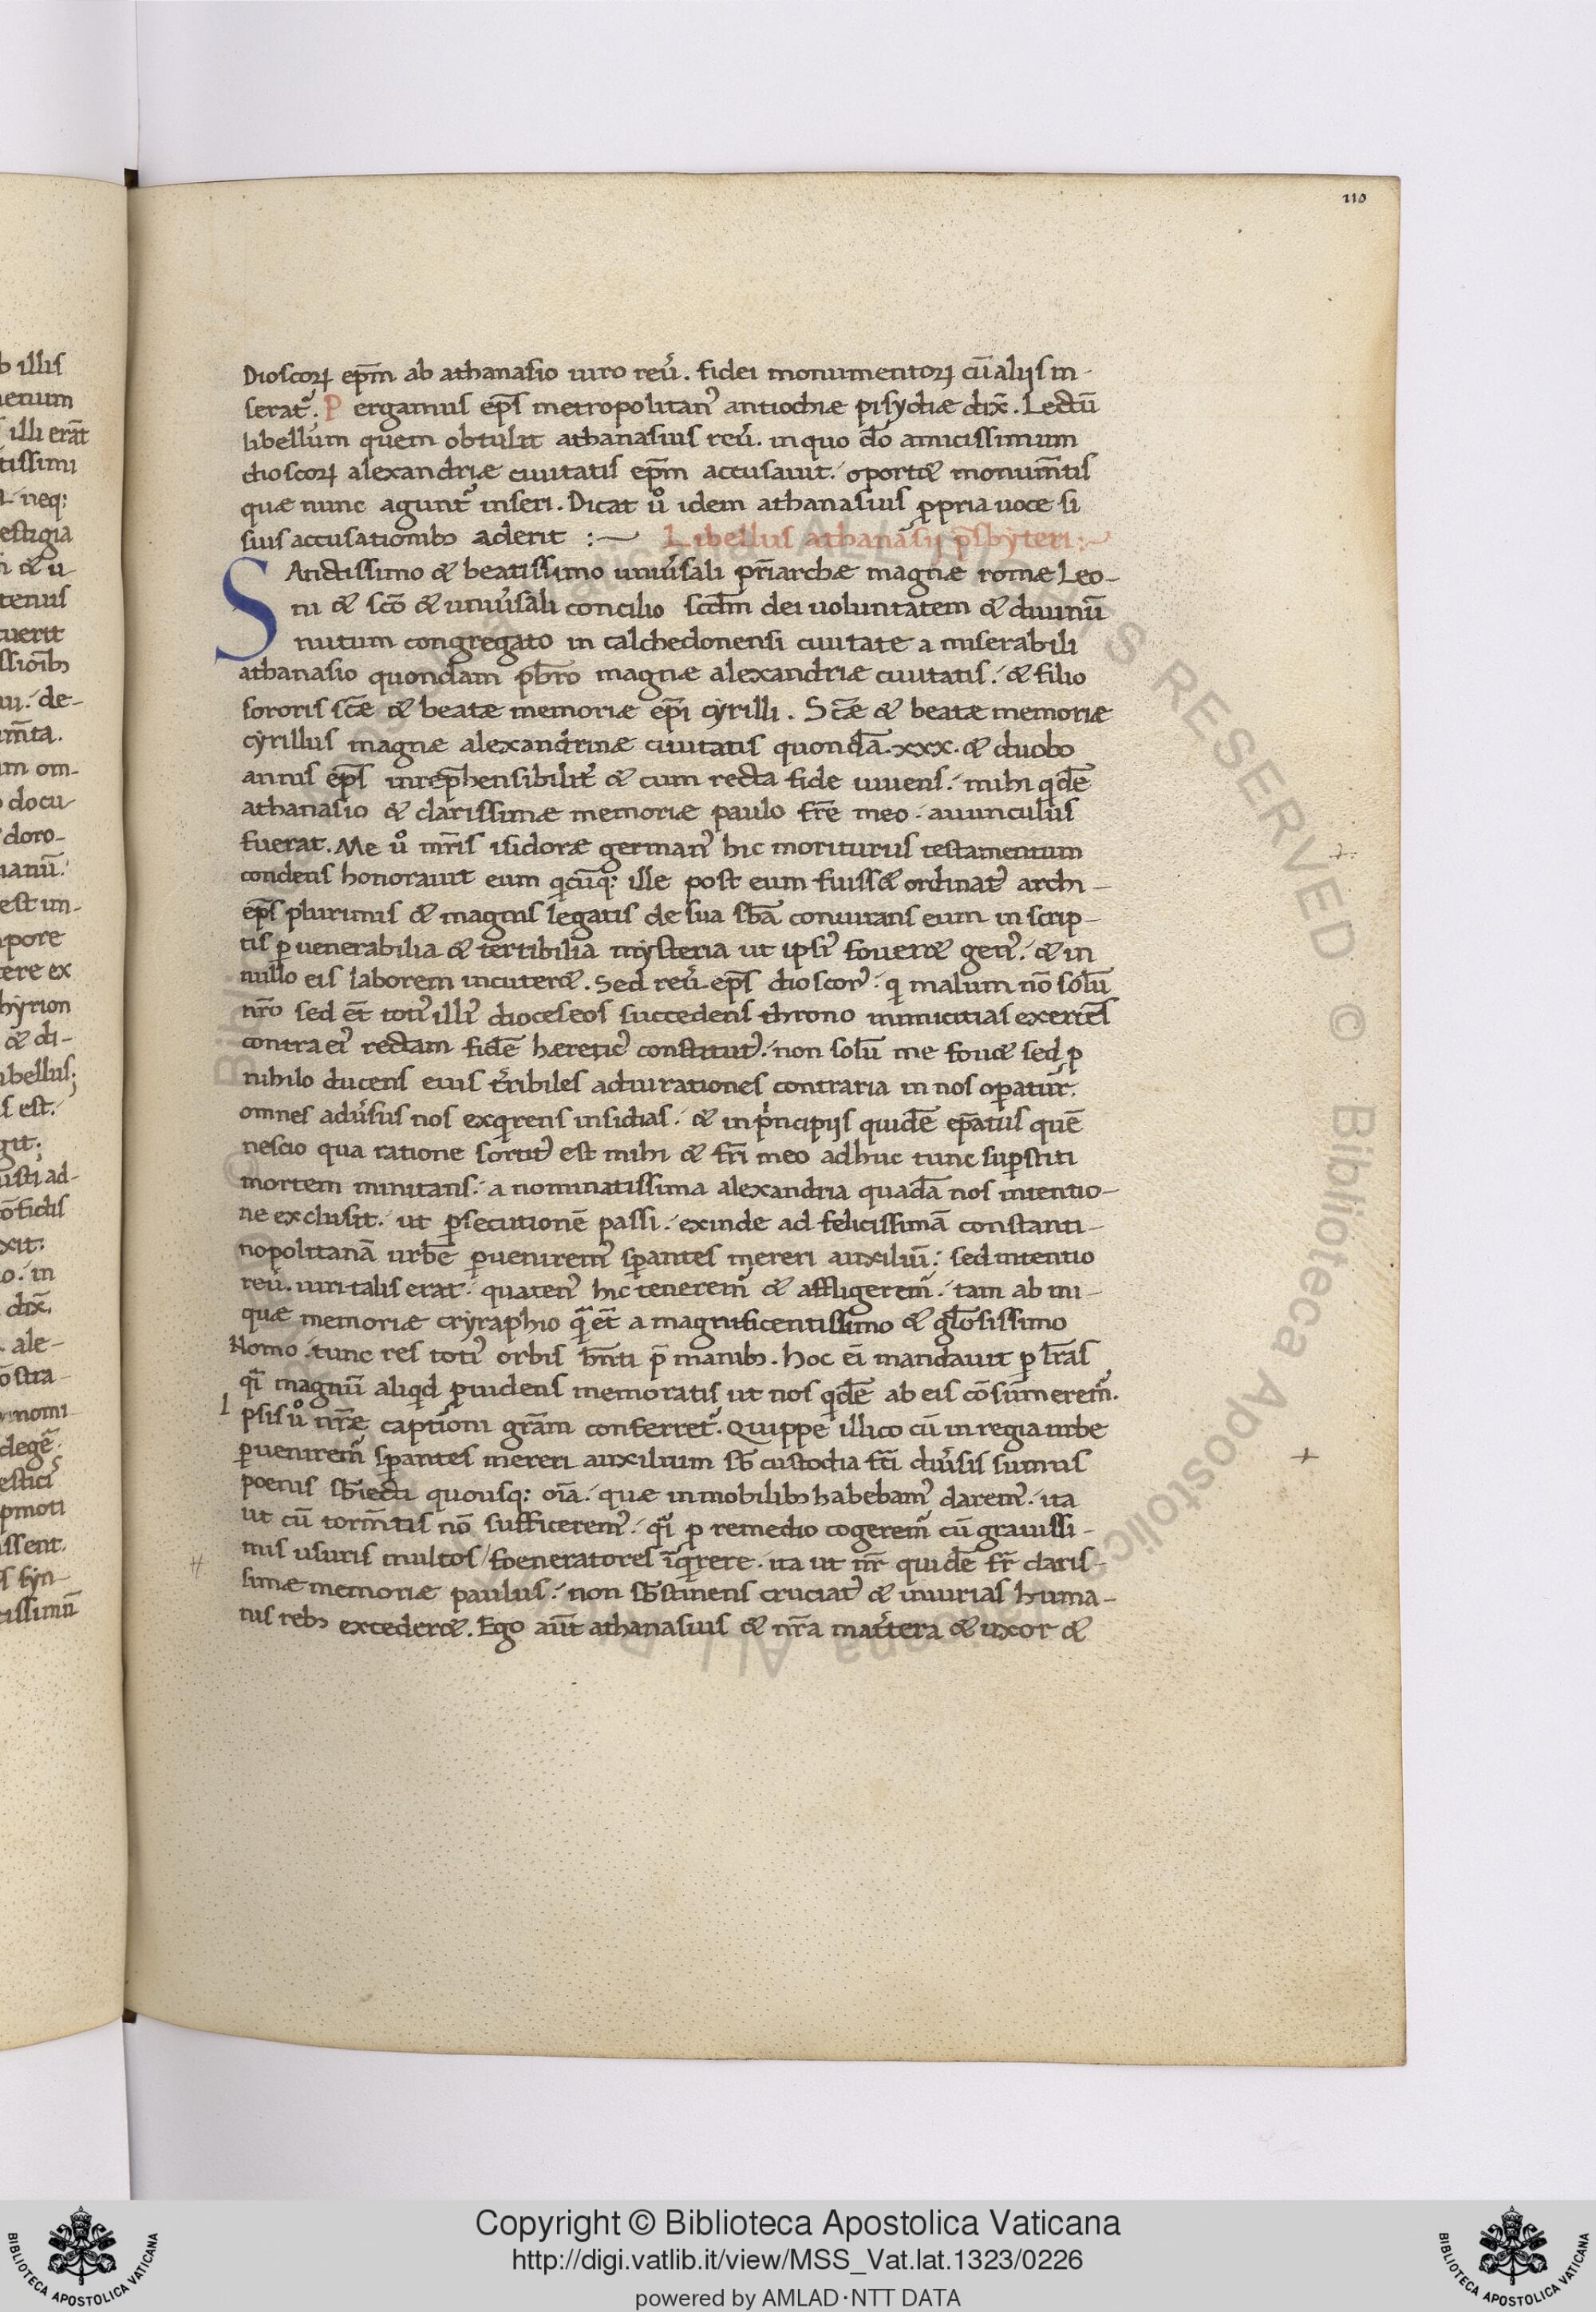 110
Dioscoꝝ ep̅m ab athanasio uiro reu̓. fidei monumentoꝝ cu̅ alijs in-
serat᷑. P ergamus ep̅s metropolitan᷒ antiochiæ pisydiæ dix̅. Lectu̅
libellum quem obtulit athanasius reu̓. in quo d̅o amicissimum
dioscoꝝ alexandriæ ciuitatis ep̅m accusauit. oport& monum̅tis
quæ nunc agunt᷑ inseri. Dicat ů idem athanasius ꝓpria uoce si
suis accusationib; aderit :~ Libellus athanasij p̅sbyteri:~
SAnctissimo & beatissimo uniu̓sali pr̅iarchæ magnæ romæ Leo-
ni & sc̅o & uniu̓sali concilio scd̅m dei uoluntatem & diuinu̅
nutum congregato in calchedonensi ciuitate a miserabili
athanasio quondam pb̅ro magnæ alexandriæ ciuitatis. & filio
sororis sc̅æ & beatæ memoriæ ep̅i cyrilli. Sc̅æ & beatæ memoriæ
cyrillus magnæ alexandrinæ ciuitatis quonda̅ .xxx. & duob;
annis ep̅s inrep̅hensibilit̓ & cum recta fide uiuens. mihi qde̅
athanasio & clarissimæ memoriæ paulo fr̅e meo. auunculus
fuerat. Me ů mr̅is isidoræ german᷒ hic moriturus testamentum
condens honorauit eum qcu̅q; ille post eum fuiss& ordinat᷒ archi-
ep̅s plurimis & magnis legatis de sua sb̅a coniurans eum in scrip-
tis ꝑ uenerabilia & terribilia mysteria ut ipsi᷒ fouer& gen᷒. & in
nullo eis laborem incuter&. Sed reu̓. ep̅s dioscor᷒. qi malum no̅ solu̅
nr̅o sed et̅ toti᷒ illi᷒ dioceseos succedens throno inimicitias exerces
contra ei᷒ rectam fide̅ hæretic᷒ constitut᷒. non solu̅ me fou& sed ꝓ
nihilo ducens eius tr̓ibiles adiurationes contraria in nos oꝑatur.
omnes adu̓sus nos exqirens insidias. & in pi̓ncipijs quide̅ ep̅atus que̅
nescio qua ratione sortit᷒ est mihi & fr̅i meo adhuc tunc suꝑstiti
mortem minitans. a nominatissima alexandria quada̅ nos intentio-
ne exclusit. ut ꝑsecutione̅ passi. exinde ad felicissima̅ constanti-
nopolitana̅ urbe̅ ꝑuenirem᷒ sꝑantes mereri auxiliu̅. sed intentio
reu̓. uiri talis erat. quaten᷒ hic tenerem᷒ & affligerem᷒. tam ab ini-
quæ memoriæ cryraphio qa̅ et̅ a magnificentissimo & gl̅osissimo
Nomo. tunc res toti᷒ orbis hn̅ti p̅ manib;. hoc ei̅ mandauit ꝑ lr̅as
qi̅ magnu̅ aliqd ꝓuidens memoratis ut nos qide̅ ab eis co̅sumerem᷒.
Ipsis ů nr̅æ captioni gr̅am conferret᷑. Quippe illico cu̅ in regia urbe
ꝑuenirem᷒ sꝑantes mereri auxilium sb̅ custodia fc̅i diu̓sis sumus
poenis sb̅iecti quousq; oi̅a. quæ in mobilib; habebam᷒ darem᷒. ita
ut cu̅ torm̅tis no̅ sufficerem᷒. qi̅ ꝓ remedio cogerem᷒ cu̅ grauissi-
mis usuris multos foeneratores i̅qirere. ita ut nr̅ quide̅ fr̅ claris-
simæ memoriæ paulus. non sb̅stinens cruciat᷒ & iniurias huma-
nis reb; exceder&. Ego au̅t athanasius & nr̅a mat̓tera & uxor &
b illis
illi erat̅
tissimi
neq;
estigia
tenus
de-
docu-
doro-
est im-
tere ex
& di-
ibellus;
s est.
in
dix̅.
ale-
Copyright © Biblioteca Apostolica Vaticana
http://digi.vatlib.it/view/MSS_Vat.lat.1323/0226
powered by AMLAD·NTT DATA
BIBLIOTECA APOSTOLICA VATICANA
BIBLIOTECA APOSTOLICA VATICANA